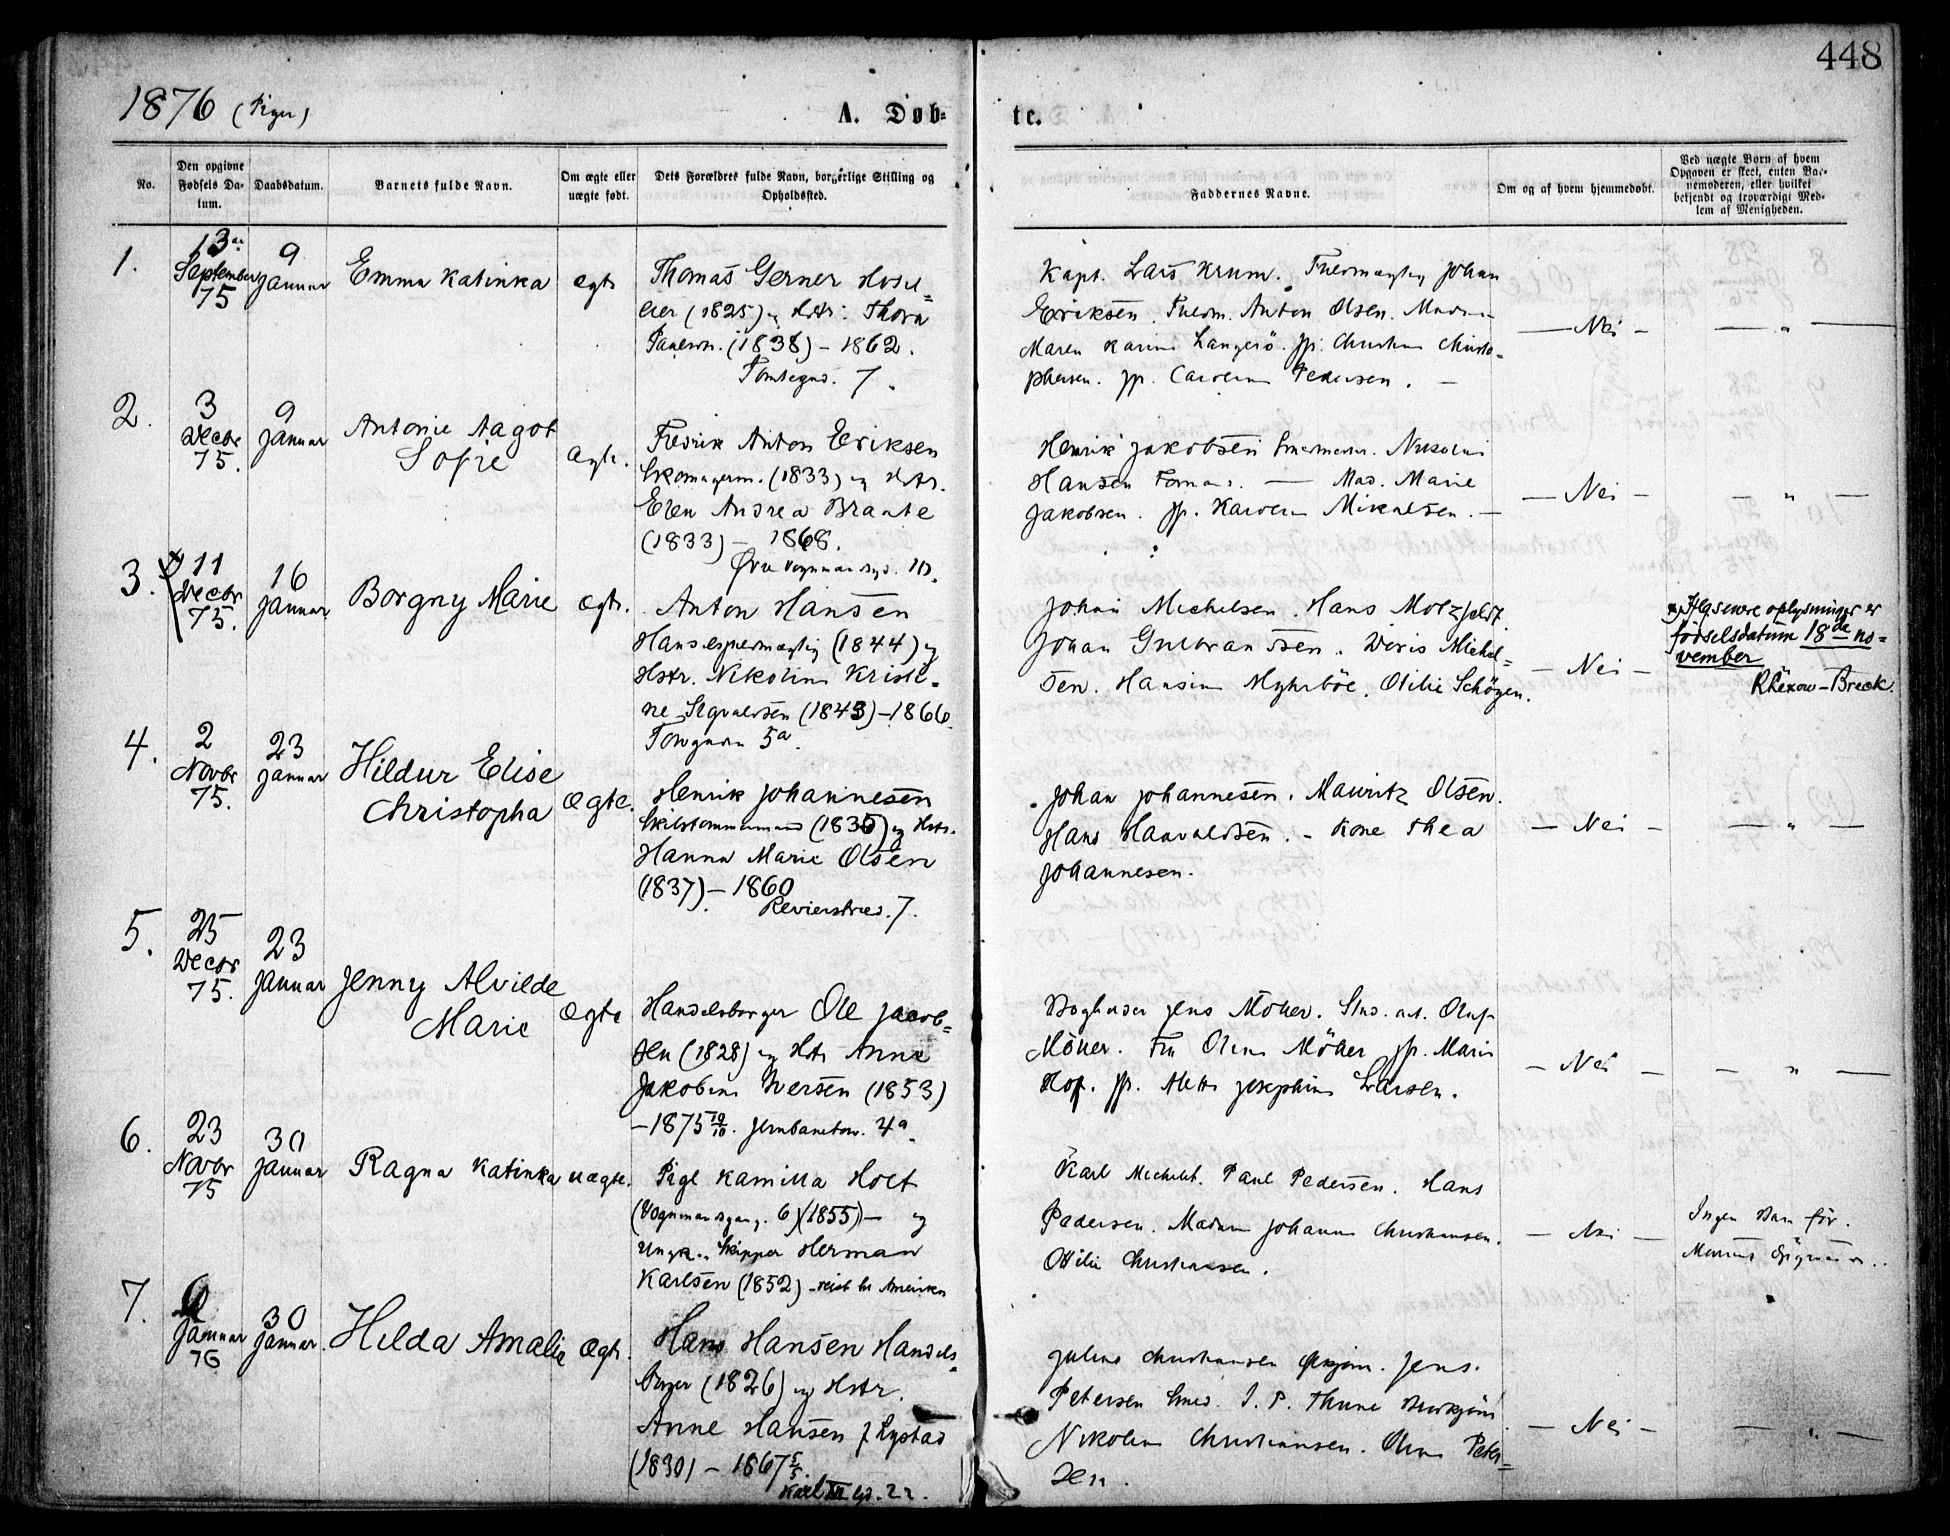 448
1876 (Piger)
A. Døb-
te.
No.
Den opgivne
Fødsels Da-
tum.
Daabsdatum.
Barnets fulde Navn.
Om ægte eller
uægte født.
Dets Forældres fulde Navn, borgerlige Stilling og
Opholdssted.
Faddernes Navne.
Om og af hvem hjemmedøbt.
Ved uægte Børn af hvem
Opgaven er skeet, enten Bar-
nemoderen, eller hvilket
bekjendt og troværdigt Med-
lem af Menigheden.
1.
13
September
75
9
Januar
Emma Katinka
ægte
Thomas Gerner
eier (1825) og Hstr: Thora
(1838) - 1862.
7.
Kapt. Lars Krum. Johan
Eriksen. Anton Olsen.
Maren Karine Langerö. jfr. Christine Christo-
phersen. jfr. Caroline Pedersen. -
- Nei -
- " -
2.
3
Decbr
75.
9
Januar
Antonie Aagot
Sofie
ægte.
Fredrik Anton Eriksen
Skomagerm. (1833) og Hstr.
Elen Andrea Braate
(1833) - 1868.
Øvre Vognmandsgd. 10.
Henrik Jakobsen Nikolai
Hansen - Mad. Marie
Jakobsen. jfr. Karoline Mikalsen. -
- Nei -
- " -
3.
x 11
Decbr
75.
16
Januar
Borgny Marie
ægte.
Anton Hansen
Handelsfuldmægtig (1844) og
Hstr. Nikoline Kristi-
ne Sigvaldsen (1843) - 1866.
5a.
Johan Michelsen. Hans Motzfeldt.
Johan Gulbranssen. Doris Michel-
sen. Hansine Myhrböe. Otilie Schöyen.
- Nei -
x) Ifg senere oplysninger er
födselsdatum 18de no-
vember
Rkexow-Breck.
4.
2
Novbr
75.
23
Januar
Hildur Elise
Christopha
ægte.
Henrik Johannesen
(1835) og Hstr.
Hanna Marie Olsen
(1837) - 1860
Revierstræd. 7.
Johan Johannesen. Mauritz Olsen.
Hans Haavaldsen. - Kone Thea
Johannesen.
- Nei -
- " -
5.
25
Decbr
75.
23
Januar
Jenny Alvilde
Marie
ægte
Handelsborger Ole Jacob-
sen (1828) og Hstr Anne
Jakobine Iversen (1853)
- 1875 10/10. Jernbanetorv. 4a.
Bogholder Jens Möller. Stud. art. Oluf
Möller. Fru Oline Möller jfr. Marie
Hof. jfr. Alette Josephine Larsen.
- Nei -
- " -
6.
23
Novbr
75
30
Januar
Ragna Katinka
uægte.
Pige Kamilla Holt
(Vognmandsgang. 6) (1855) - og
Ungk. Skipper Herman
Karlsen (1852) - reist til Amerika
Karl Michelet. Paul Pedersen. Hans
Pedersen. Madam Johanne Christiansen.
Otilie Christiansen.
- Nei -
Ingen Barn för.
7.
6
Januar
76
30
Januar.
Hilda Amalie
ægte.
Hans Hansen Handels-
borger (1826) og Hstr.
Anne Hansen f Lystad
(1830) - 1867 5/5.
Karl XII gd. 22.
Julius Christiansen Jens
Petersen Smed. I. P. Thune
Nikoline Christiansen. Oline Peter-
sen.
- Nei -
- " -